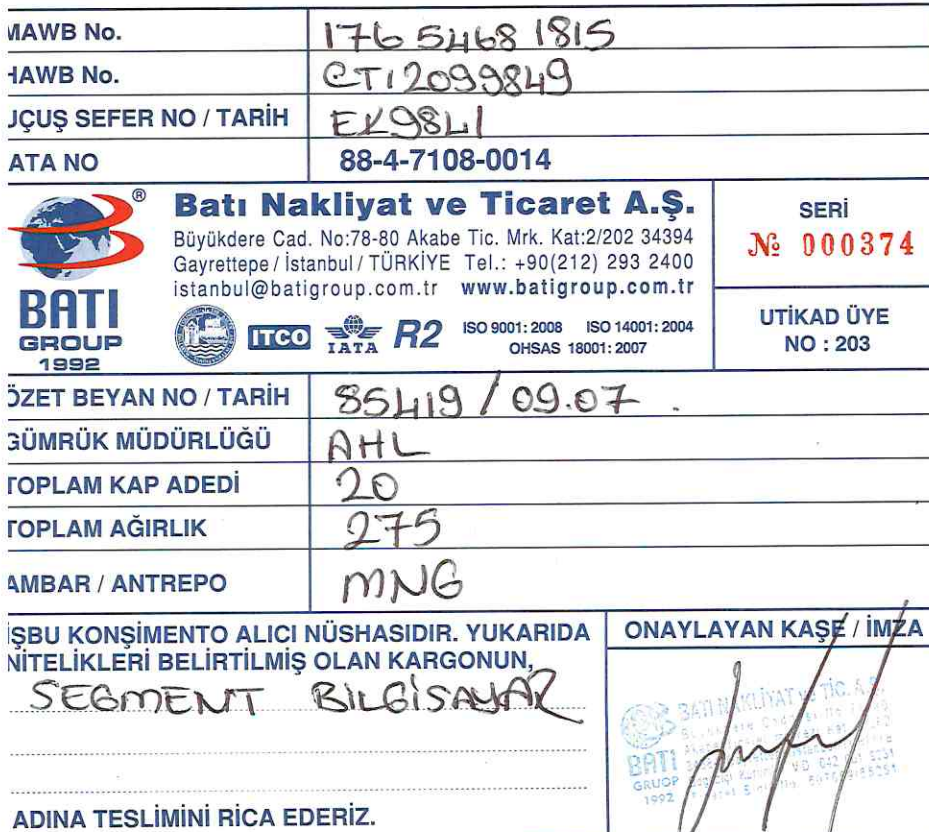 MAWB No. 176 5468 1815
HAWB No. CTI2099849
UÇUŞ SEFER NO / TARİH EK9841
ATA NO 88-4-7108-0014
BATI
GROUP
1992
®
Batı Nakliyat ve Ticaret A.Ş.
Büyükdere Cad. No:78-80 Akabe Tic. Mrk. Kat:2/202 34394
Gayrettepe / İstanbul / TÜRKİYE Tel.: +90(212) 293 2400
istanbul@batigroup.com.tr www.batigroup.com.tr
ITCO IATA R2 ISO 9001: 2008 ISO 14001: 2004
OHSAS 18001: 2007
SERİ
№ 000374
UTİKAD ÜYE
NO : 203
ÖZET BEYAN NO / TARİH 85419 / 09.07.
GÜMRÜK MÜDÜRLÜĞÜ AHL
TOPLAM KAP ADEDİ 20
TOPLAM AĞIRLIK 275
AMBAR / ANTREPO MNG
İŞBU KONŞİMENTO ALICI NÜSHASIDIR. YUKARIDA
NİTELİKLERİ BELİRTİLMİŞ OLAN KARGONUN,
SEGMENT BİLGİSAYAR
ADINA TESLİMİNİ RİCA EDERİZ.
ONAYLAYAN KAŞE / İMZA
BATI NAKLİYAT ve TİC. A.Ş.
BATI
GRUOP
1992